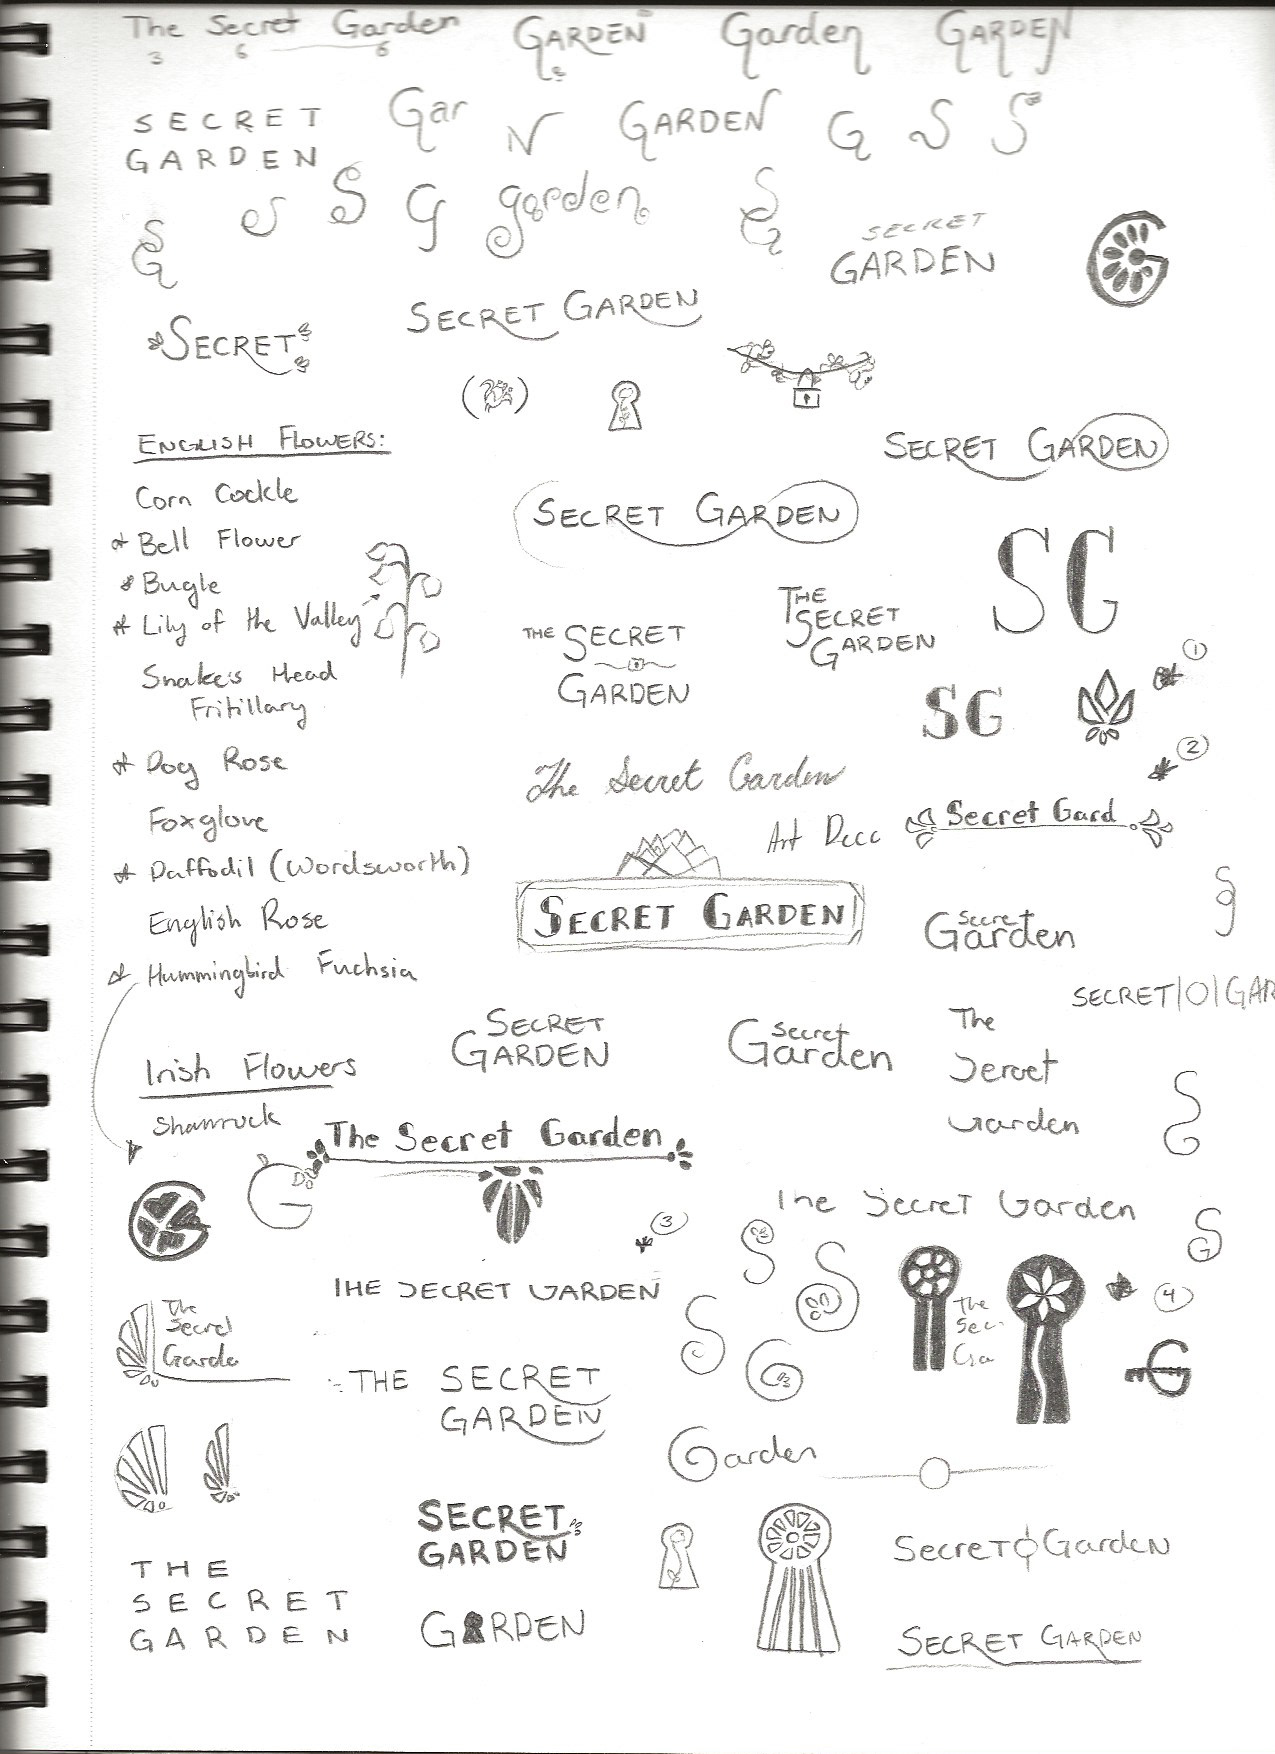 The Secret Garden GARDEN Garden GARDEN
3 6 6
SECRET Gar N GARDEN G S S
GARDEN
S S G garden
SG
SG
SECRET
GARDEN
G
SECRET
SECRET GARDEN
ENGLISH FLOWERS:
SECRET GARDEN
Corn Cockle
SECRET GARDEN
Bell Flower
SG
Bugle
THE
SECRET
GARDEN
Lily of the Valley
THE SECRET
GARDEN
1
Snakes Head
Fritillary
SG
2
Dog Rose
The Secret Garden
Foxglove
Art Deco
Secret Gard
Daffodil (Wordsworth)
SECRET GARDEN
English Rose
Secret
Garden
Hummingbird Fuchsia
SECRET|O|GAR
SECRET
GARDEN
Secret
Garden
The
Secret
Garden
Irish Flowers
Shamrock
The Secret Garden
G
The Secret Garden
3
S
THE SECRET GARDEN
The
Sec
Ga
4
G
The
Secret
Garde
S S S G
THE SECRET
GARDEN
Garden
SECRET
GARDEN
Secret Garden
THE
SECRET
GARDEN
GARDEN
SECRET GARDEN